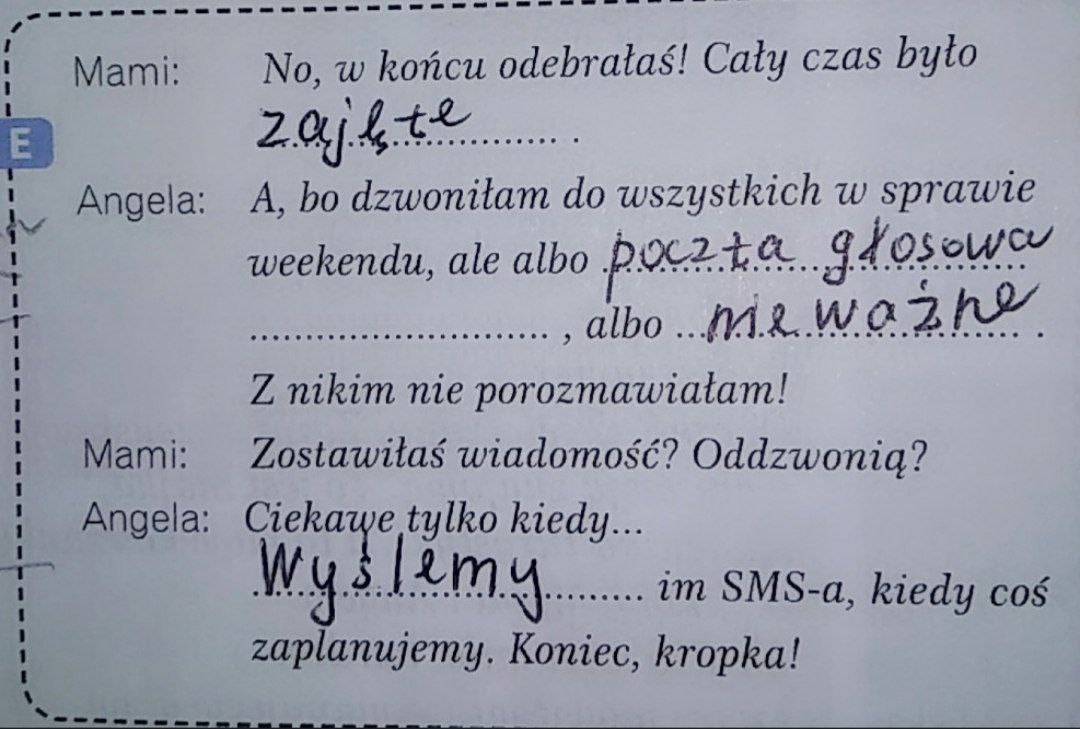 Mami: No, w końcu odebrałaś! Cały czas było
zajęte .
E
Angela: A, bo dzwoniłam do wszystkich w sprawie
weekendu, ale albo poczta głosowa
, albo nie ważne .
Z nikim nie porozmawiałam!
Mami: Zostawiłaś wiadomość? Oddzwonią?
Angela: Ciekawe tylko kiedy...
Wyślemy im SMS-a, kiedy coś
zaplanujemy. Koniec, kropka!